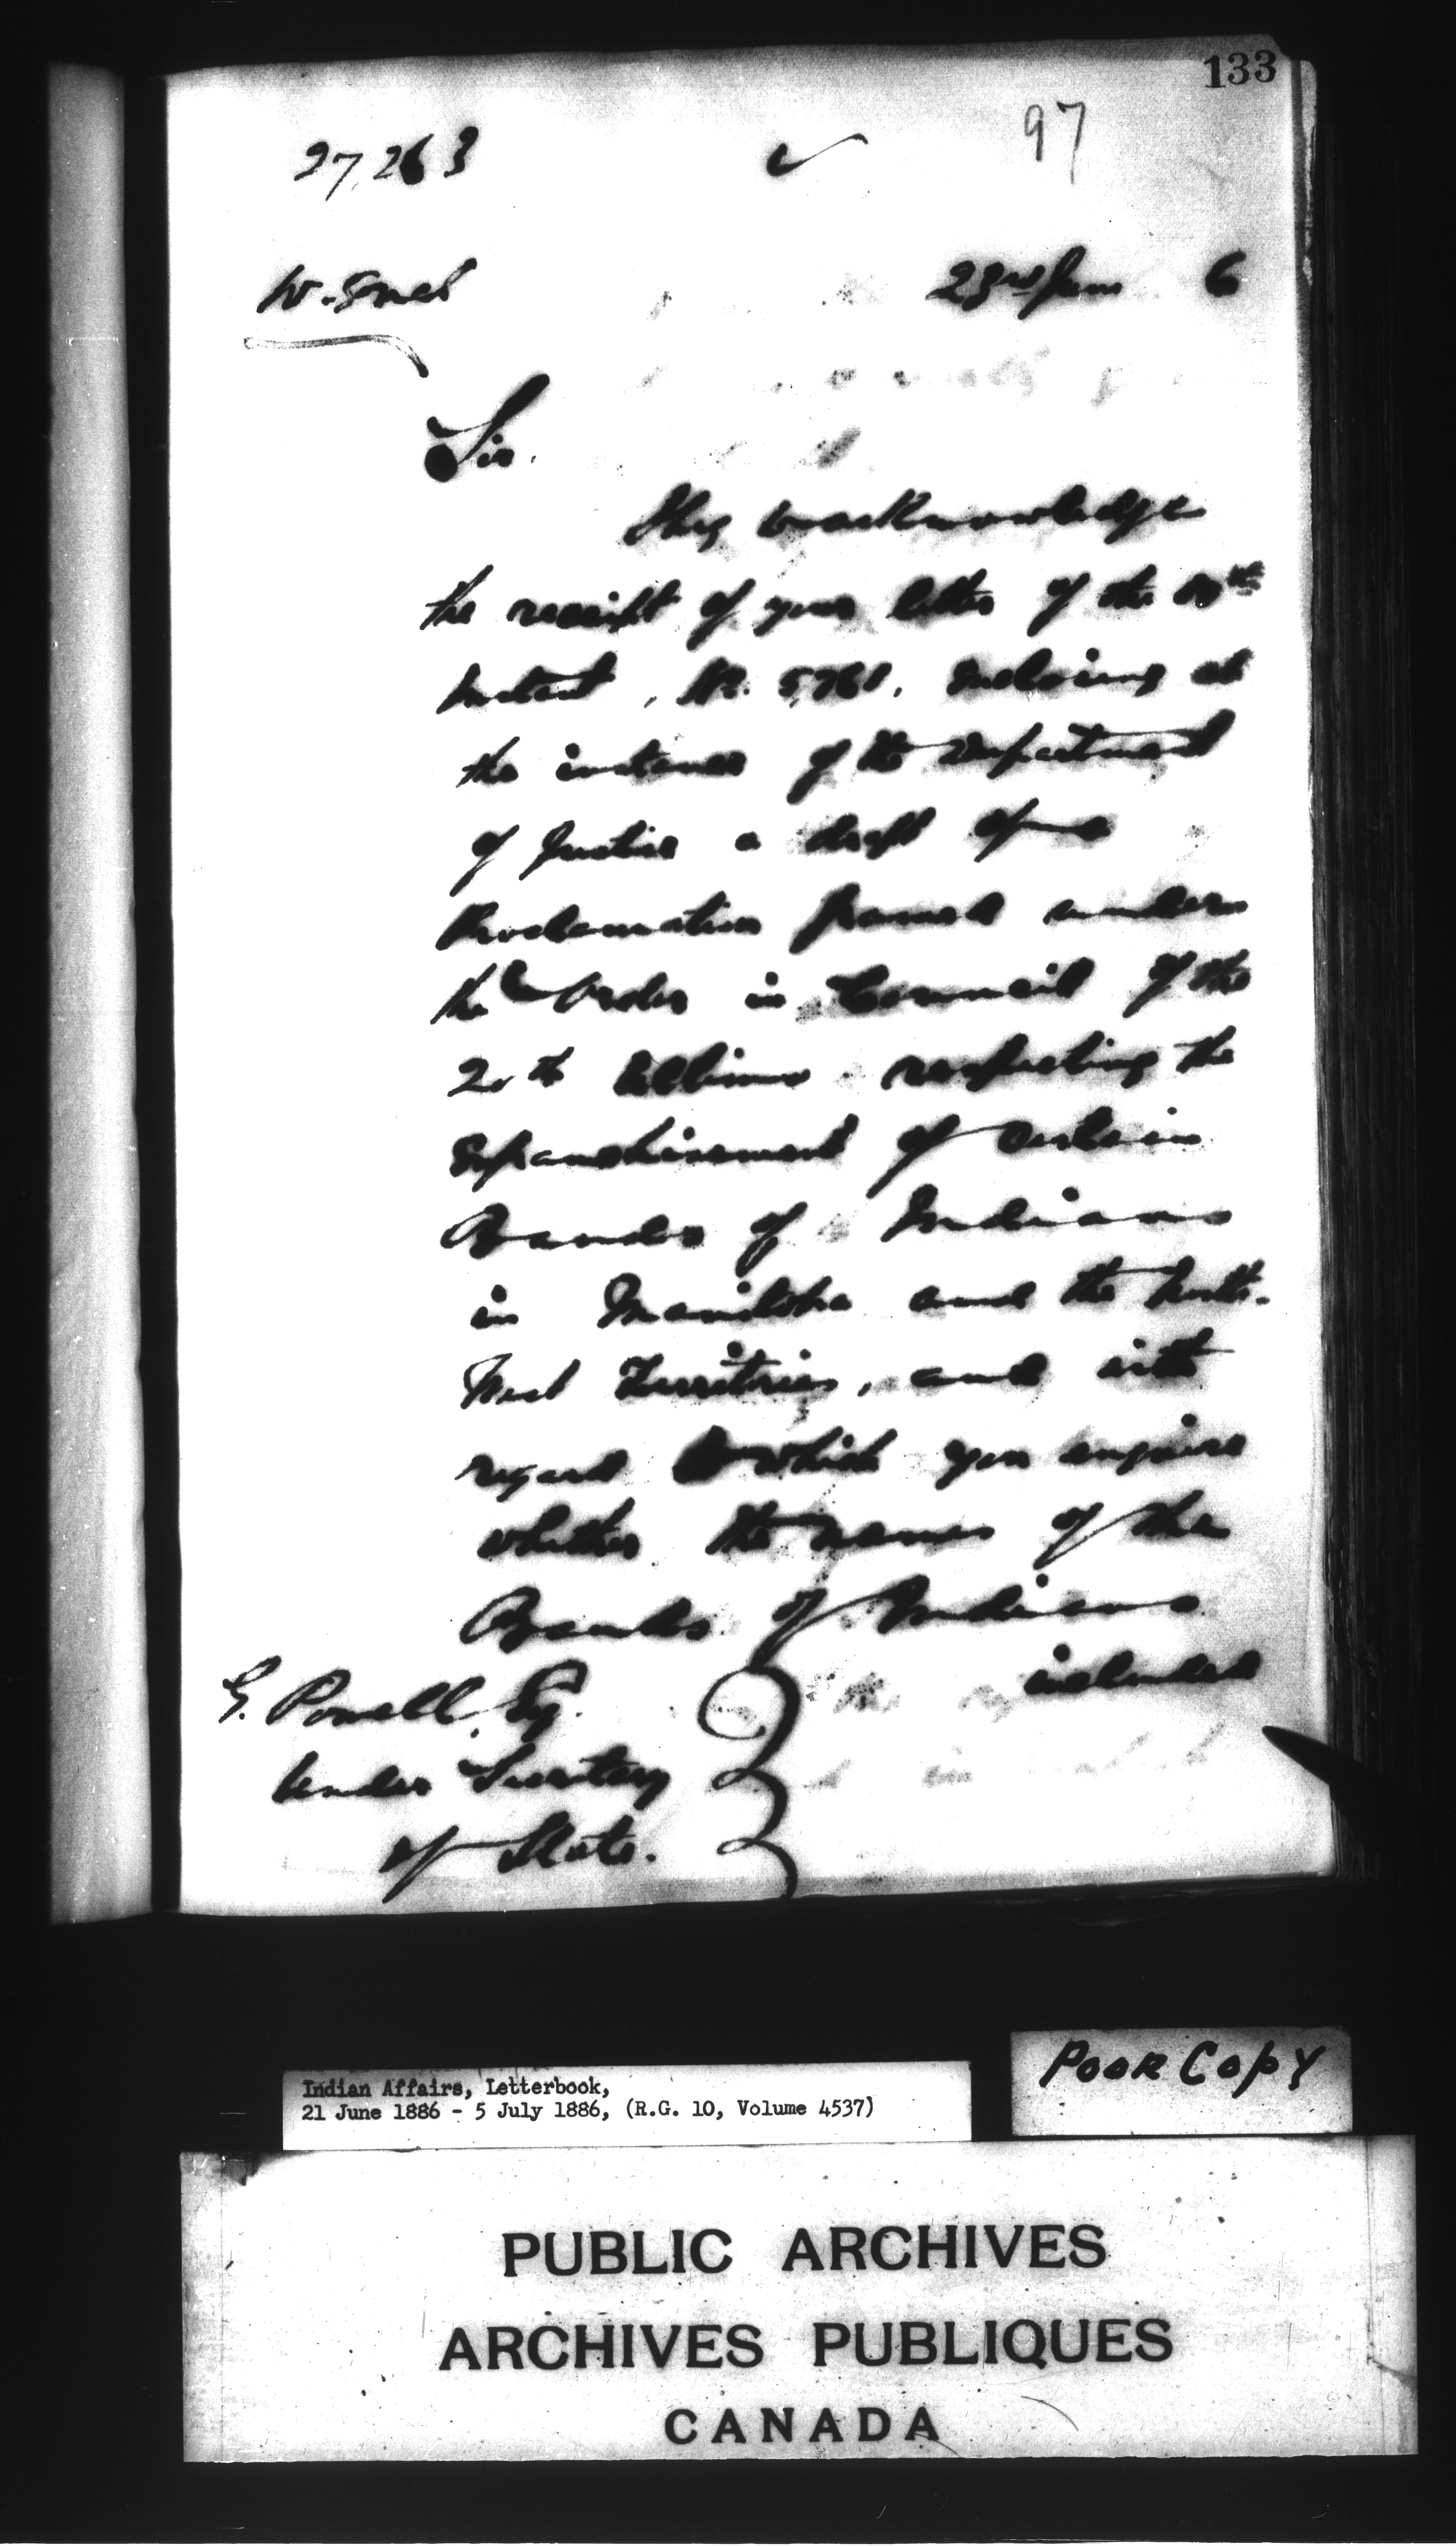 133
97
27,263
23rd June 6
Sir,
I beg to acknowledge
the receipt of your letter of the
Instant, No. 5,761, enclosing at
the instance of the Department
of Justice a draft of a
Proclamation framed under
the Order in Council of the
20th Ultimo respecting the
Enfranchisement of certain
Bands of Indians
in Manitoba and the North-
West Territories, and with
regard to which you enquire
whether the names of the
Bands of Indians
included
G. Powell, Esq.
Under Secretary
of State.
Poor Copy
Indian Affairs, Letterbook,
21 June 1886 - 5 July 1886, (R.G. 10, Volume 4537)
PUBLIC ARCHIVES
ARCHIVES PUBLIQUES
CANADA